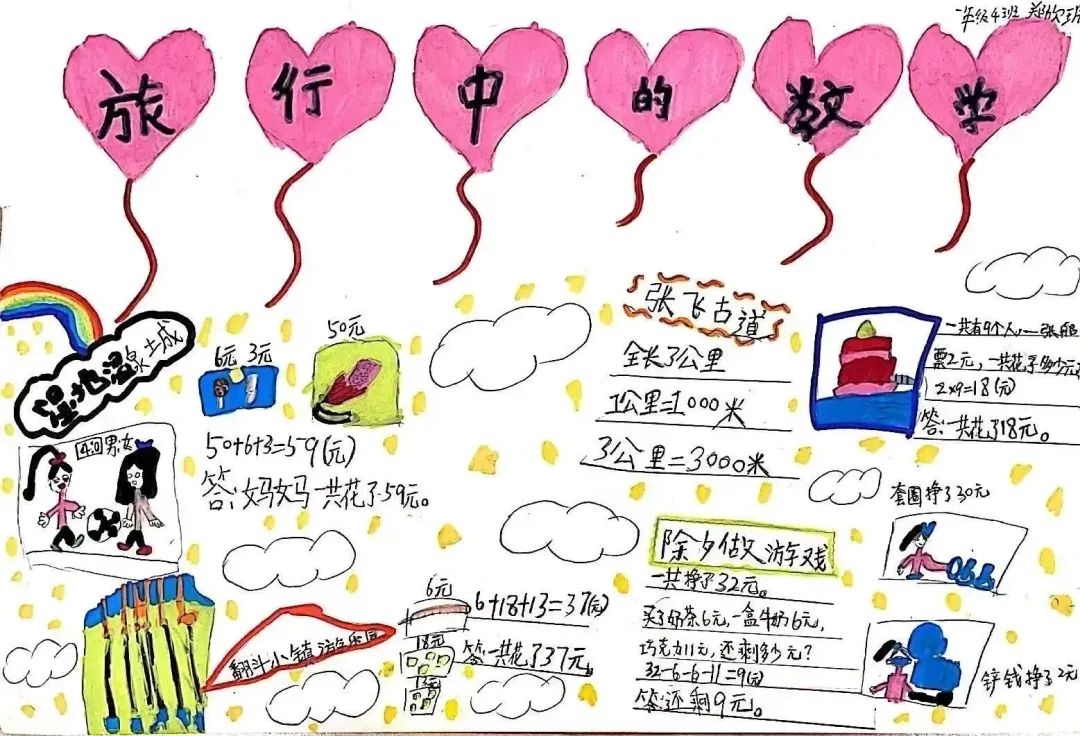 一年级4班 郑欣玥
旅行中的数学
湿地温泉土城
6元 3元
50元
50+6+3=59(元)
答:妈妈一共花了59元。
男女
张飞古道
全长3公里
1公里=1000米
3公里=3000米
一共有9个人,一张船
票2元,一共花了多少元?
2×9=18(元)
答:一共花了18元。
翻斗小镇游乐园
6元
18元
13元
6+18+13=37(元)
答:一共花了37元。
除夕做游戏
一共挣了32元。
买了奶茶6元,一盒牛奶6元,
巧克力11元,还剩多少元?
32-6-6-11=9(元)
答:还剩9元。
套圈挣了30元
钱挣了2元